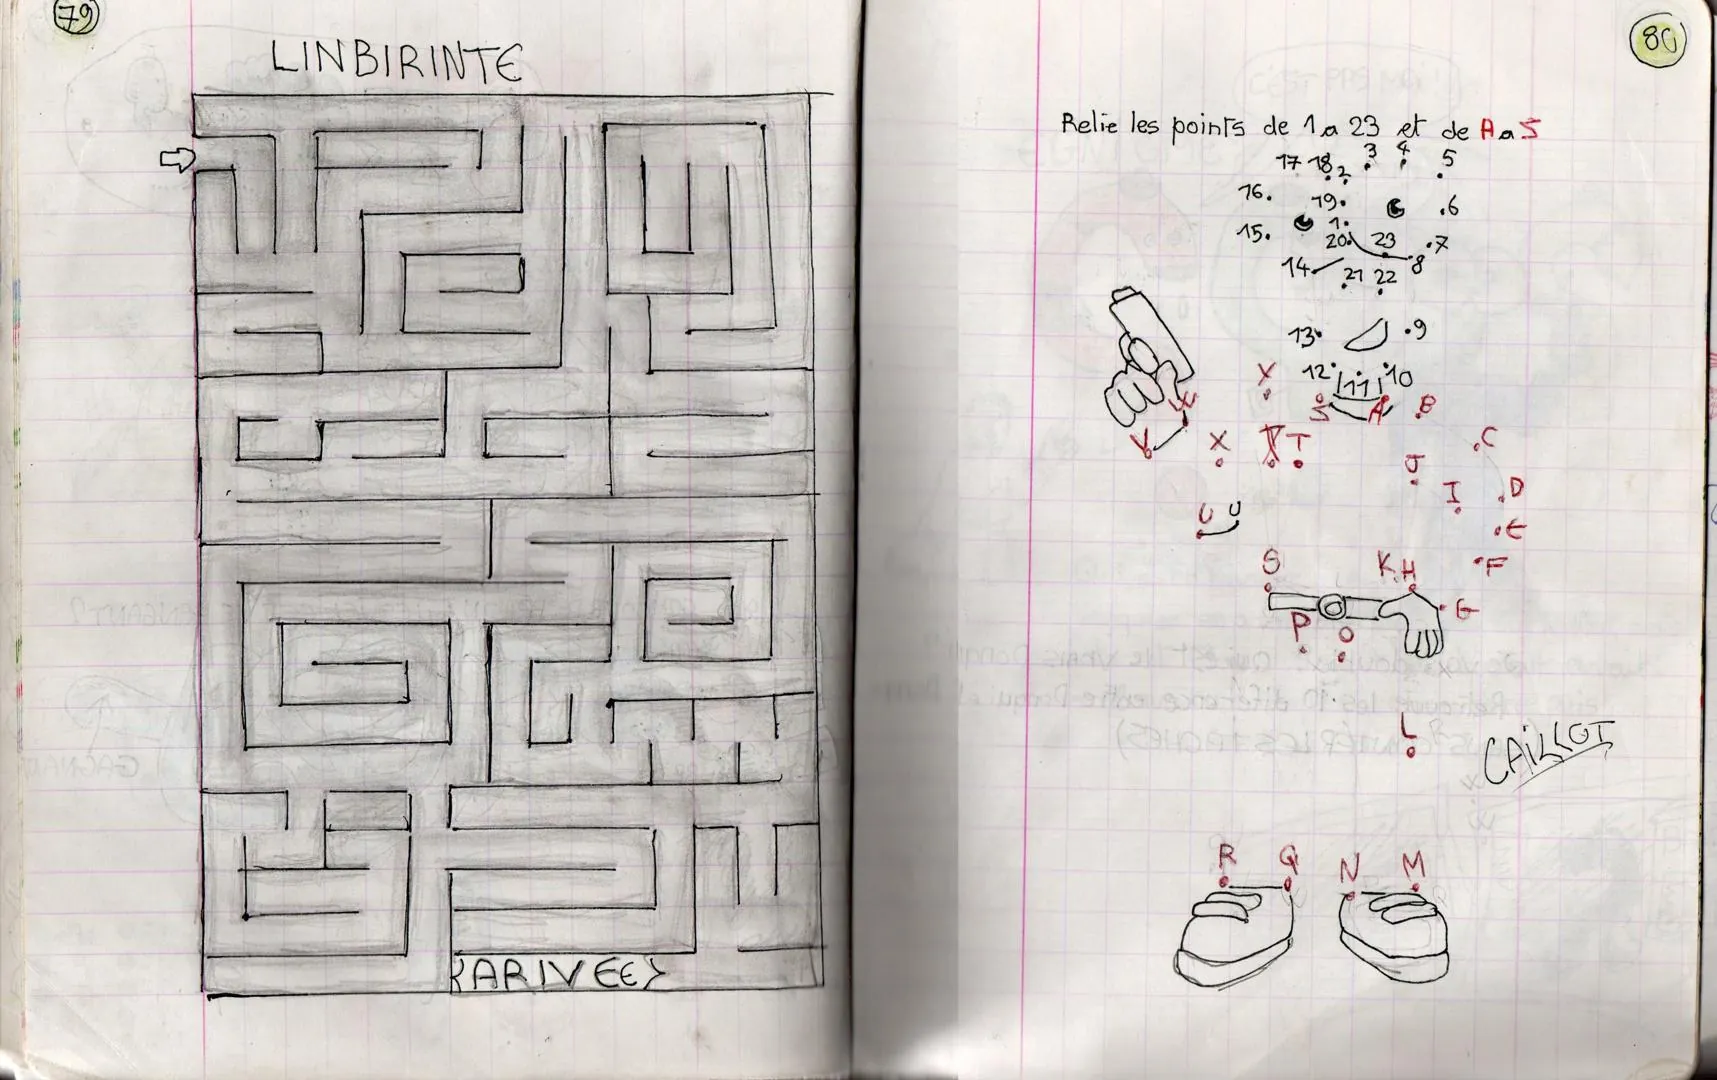 79
LINBIRINTE
{ARIVEE}
80
Relie les points de 1 a 23 et de A a S
17 18 2 3 4 5
16 19 6
15 1 20 23 7
14 21 22 8
13 9
X 12 11 10
W S A B
V X T C
J
I D
U U E
S K H F
G
P O
L
CAILLOT
R Q N M